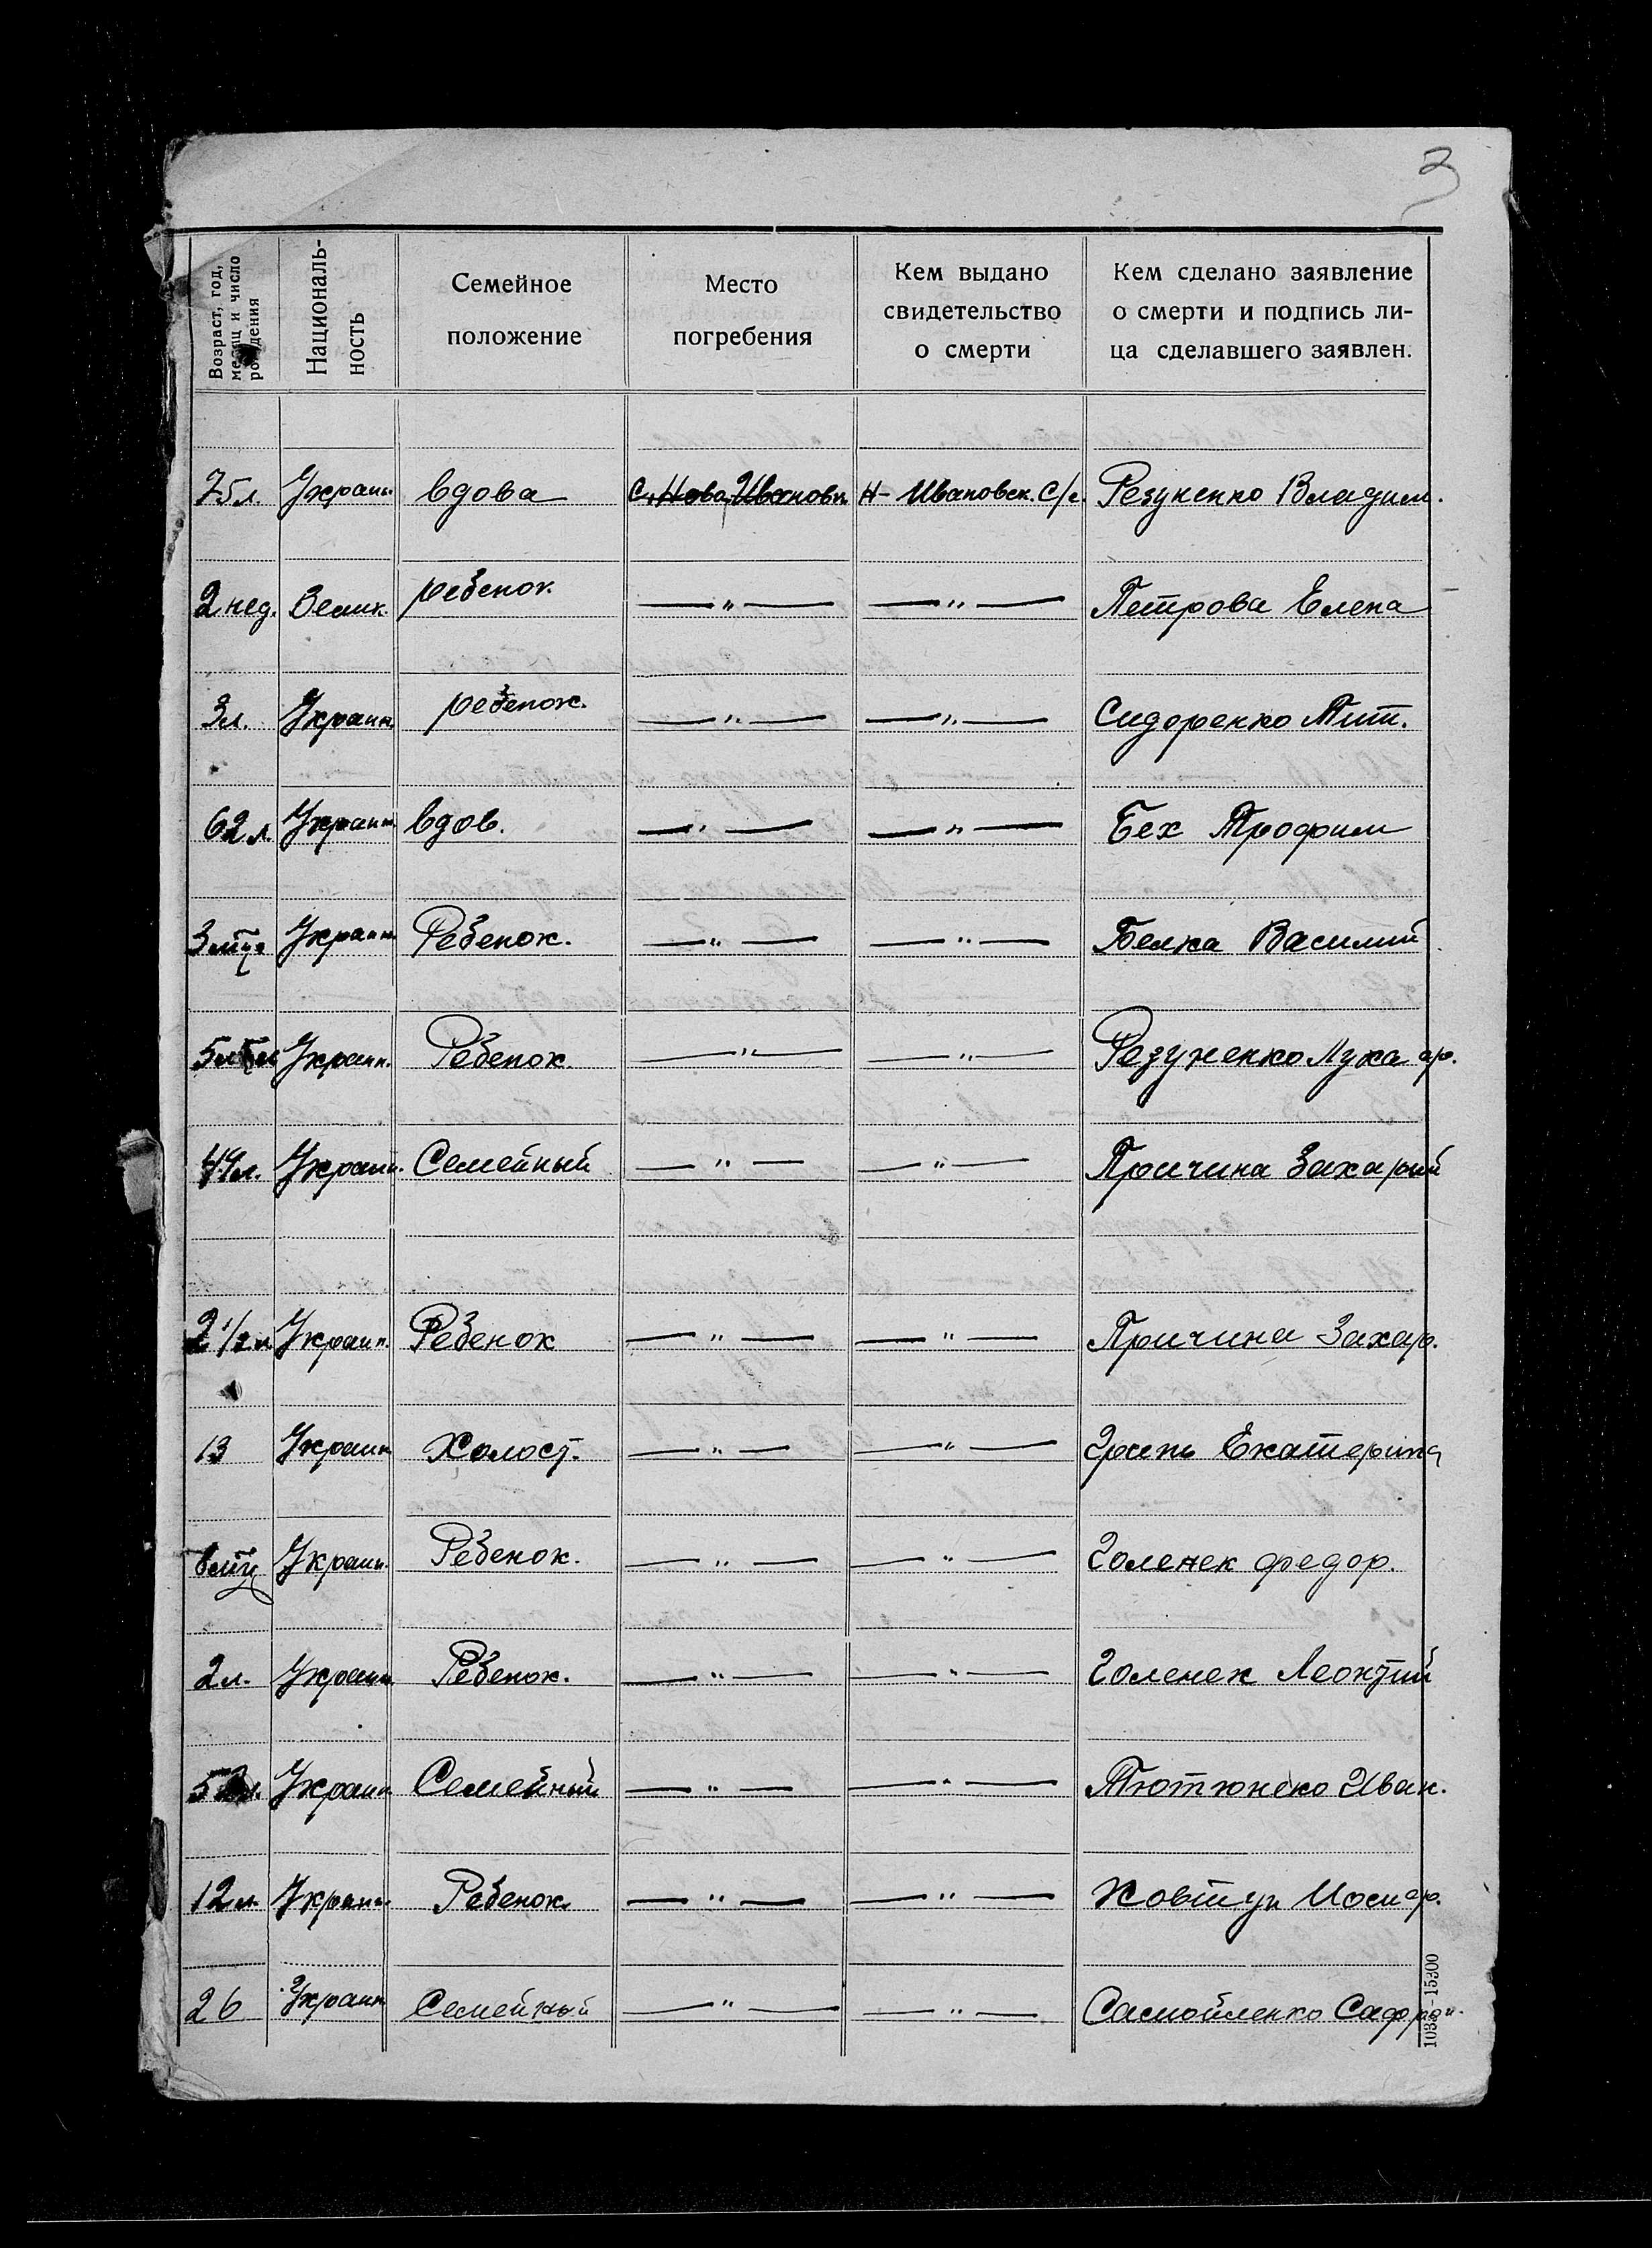 3
Возраст, год, месяц и число рождения
Националь-
ность
Семейное
положение
Место
погребения
Кем выдано
свидетельство
о смерти
Кем сделано заявление
о смерти и подпись ли-
ца сделавшего заявлен.
75л. Украин. вдова с. Ново-Ивановк. Н-Ивановск. С/с. Резуненко Владим.
2 нед. Велик. ребенок. — " — — " — Петрова Елена
3л. Украин. ребенок. — " — — " — Сидоренко Тит.
62 л. Украин. вдов. — " — — " — Бех Трофим
3 м-ца Украин. Ребенок. — " — — " — Белка Василий
Украин. Ребенок. — " — — " — Резуненко Лука
49л. Украин. Семейный — " — — " — Причина Захарий
2 1/2 л. Украин. Ребенок — " — — " — Причина Захар.
13 Украин. Холост. — " — — " — Гринь Екатерина
Украин. Ребенок. — " — — " — Голенек федор.
2л. Украин. Ребенок. — " — — " — Голенек Леонтий
Украин. Семейный — " — — " — Тютюнеко Иван.
12л. Украин. Ребенок. — " — — " — Ковтун Иосиф.
26 Украин. Семейный — " — — " — Самойленко Сафрон.